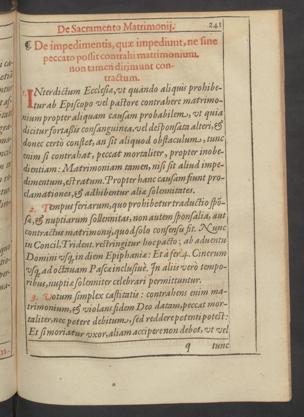 De Sacramento Matrimonij. 241
¶ De impedimentis, quæ impediunt, ne sine
peccato possit contrahi matrimonium,
non tamen dirimunt con-
tractum.
1. INterdictum Ecclesiæ, vt quando aliquis prohibe-
tur ab Episcopo vel pastore contrahere matrimo-
nium propter aliquam causam probabilem, vt quia
dicitur fortassis consanguinea, vel desponsata alteri, &
donec certò constet, an sit aliquod obstaculum, tunc
enim si contrahat, peccat mortaliter, propter inobe-
dientiam: Matrimoniam tamen, nisi sit aliud impe-
dimentum, est ratum. Propter hanc causam fiunt pro-
clamationes, & adhibentur alia solemnitates.
2. Tempus feriarum, quo prohibetur traductio spō-
sæ, & nuptiarum sollemnitas, non autem sponsalia, aut
contractus matrimonij, quod solo consensu fit. Nunc
in Concil. Trident. restringitur hoc pacto; ab aduentu
Domini vsq, in diem Epiphania: Et a fer. 4. Cinerum
vsq, ad octauam Pasca inclusiuè. In aliis verò tempo-
ribus, nuptiæ solemniter celebrari permittuntur.
3. Votum simplex castitatis: contrahens enim ma-
trimonium, & violans fidem Deo datam, peccat mor-
taliter, nec potere debitum, sed reddere petenti potest:
Et si moriatur vxor, aliam accipere non debet, vt vel
q tunc